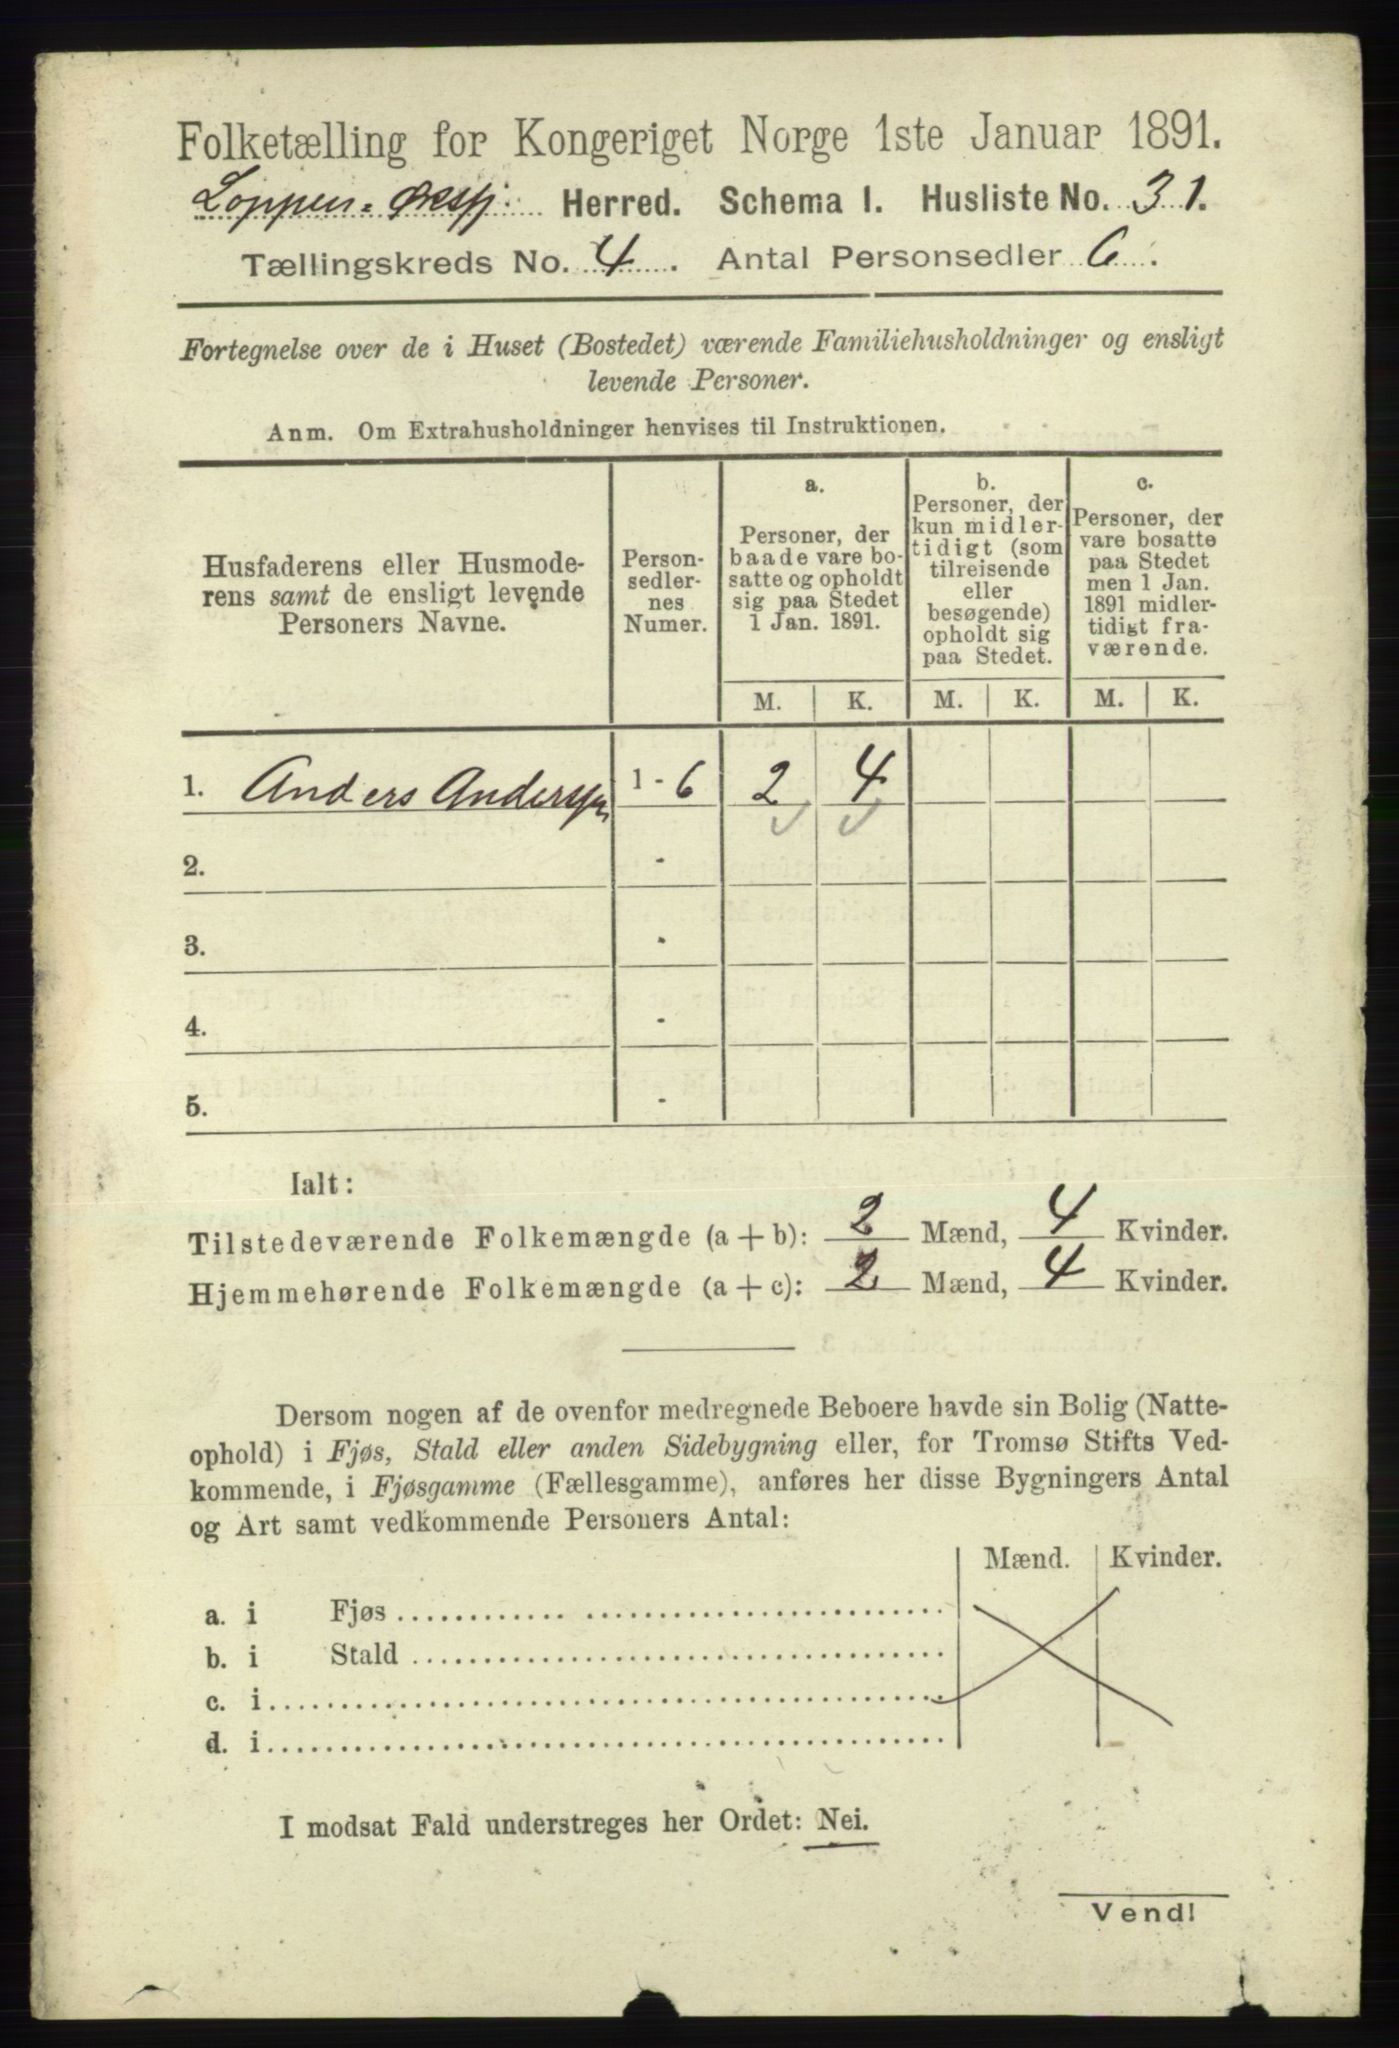 Folketælling for Kongeriget Norge 1ste Januar 1891.
Loppen Herred. Schema I. Husliste No. 31.
Tællingskreds No. 4. Antal Personsedler 6.
Fortegnelse over de i Huset (Bostedet) værende Familiehusholdninger og ensligt
levende Personer.
Anm. Om Extrahusholdninger henvises til Instruktionen.
Husfaderens eller Husmode-
rens samt de ensligt levende
Personers Navne.
Person-
sedler-
nes
Numer.
a.
Personer, der
baade vare bo-
satte og opholdt
sig paa Stedet
1 Jan. 1891.
b.
Personer, der
kun midler-
tidigt (som
tilreisende
eller
besøgende)
opholdt sig
paa Stedet.
c.
Personer, der
vare bosatte
paa Stedet
men 1 Jan.
1891 midler-
tidigt fra-
værende.
M. K. M. K. M. K.
1. Anders Anderssen 1 - 6 2 4
2. -
3. -
4. -
5. -
Ialt:
Tilstedeværende Folkemængde (a + b): 2 Mænd, 4 Kvinder.
Hjemmehørende Folkemængde (a + c): 2 Mænd, 4 Kvinder.
Dersom nogen af de ovenfor medregnede Beboere havde sin Bolig (Natte-
ophold) i Fjøs, Stald eller anden Sidebygning eller, for Tromsø Stifts Ved-
kommende, i Fjøsgamme (Fællesgamme), anføres her disse Bygningers Antal
og Art samt vedkommende Personers Antal:
Mænd. Kvinder.
a. i Fjøs
b. i Stald
c. i
d. i
I modsat Fald understreges her Ordet: Nei.
Vend!